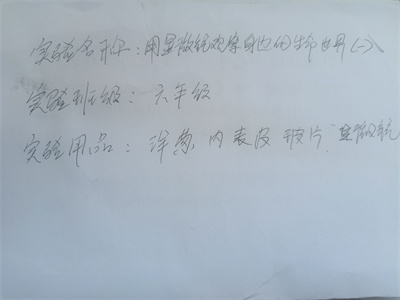 实验名称:用显微镜观察身边的生命世界(一)
实验班级:六年级
实验用品:洋葱内表皮玻片 显微镜